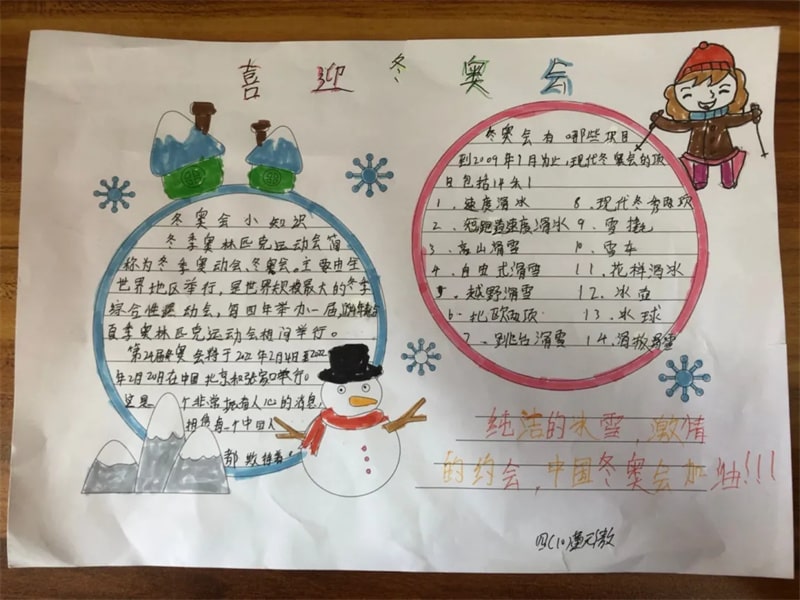 喜迎冬奥会
冬奥会小知识
冬季奥林匹克运动会简
称为冬季奥动会、冬奥会。主要由全
世界地区举行,是世界规模最大的冬季
综合性运动会,每四年举办一届,
夏季奥林匹克运动会相间举行。
第24届冬奥会将于2022年2月4日至2022
年2月20日在中国北京和张家口举行。
这是一个非常振奋人心的消息,
相信每一个中国人
都
冬奥会有哪些项目
到2009年1月为止,现代冬奥会的项
目包括14个
1、速度滑冰
2、短跑道速度滑冰
3、高山滑雪
4、自由式滑雪
5、越野滑雪
6、北欧两项
7、跳台滑雪
8、现代冬季两项
9、雪橇
10、雪车
11、花样滑冰
12、冰壶
13、冰球
14、滑板滑雪
纯洁的冰雪,激情
的约会,中国冬奥会加油!!!
四(10)